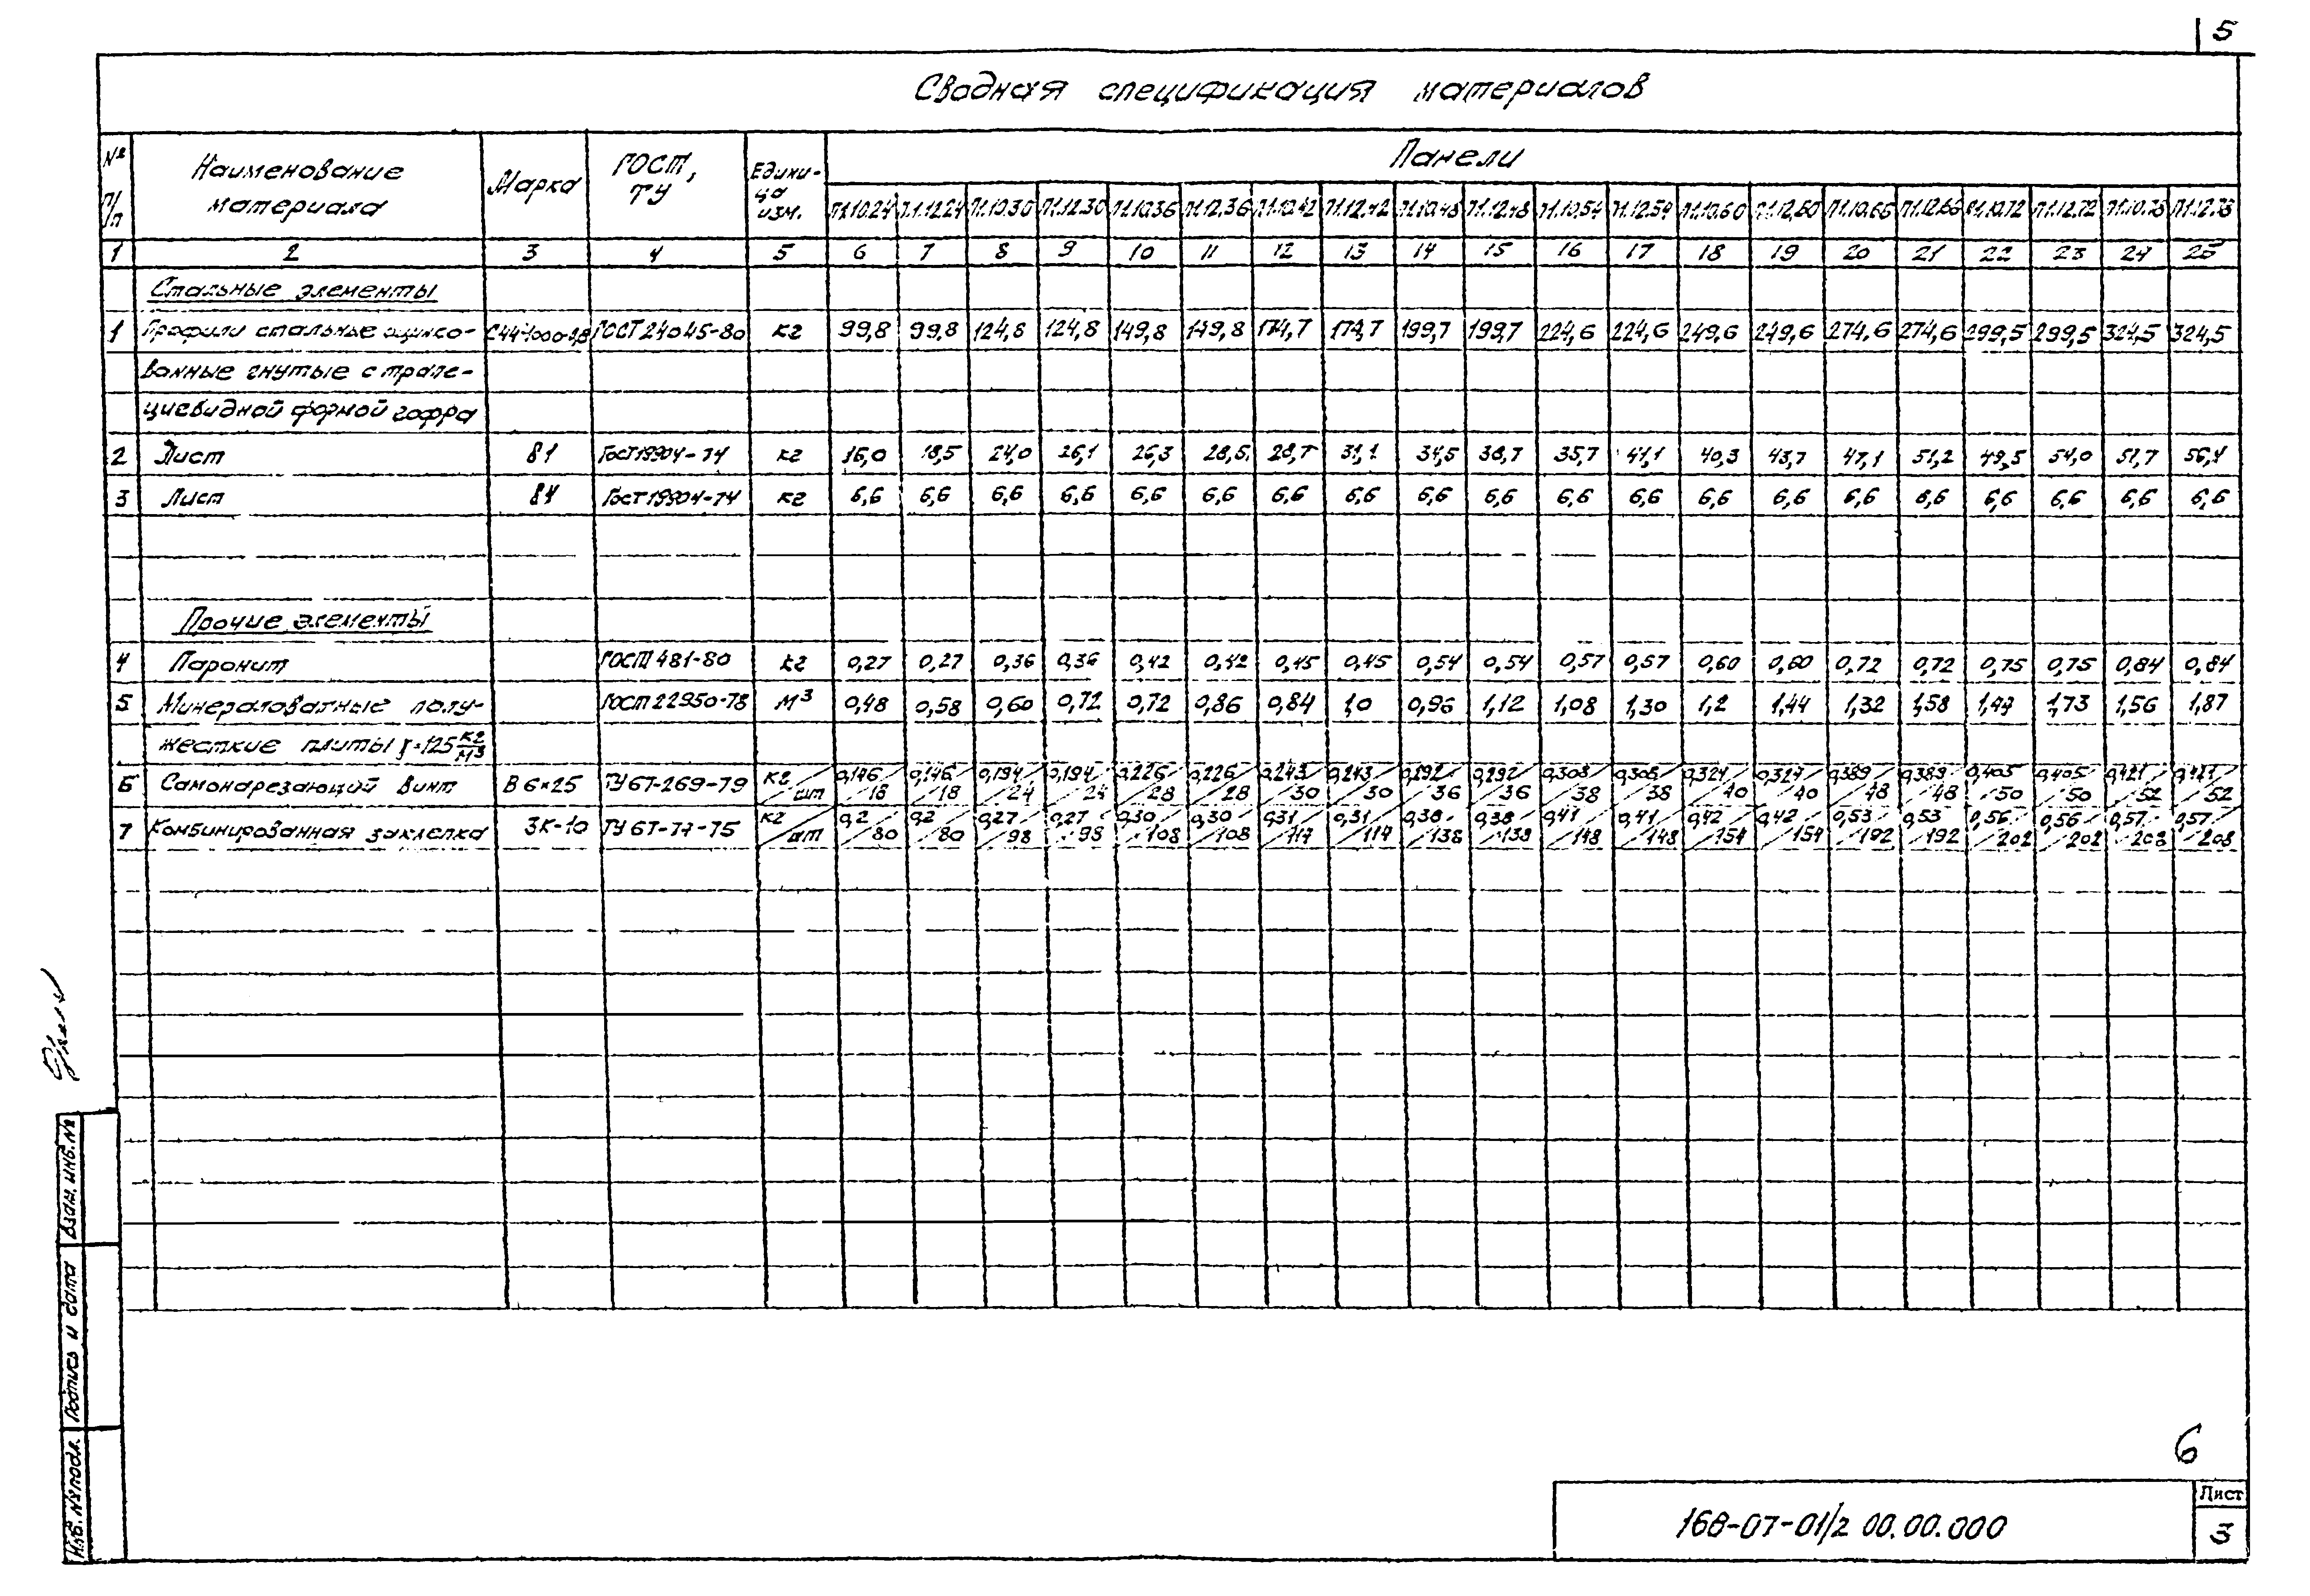 5
Сводная спецификация материалов
№ п/п Наименование материала Марка ГОСТ, ТУ Едини-ца изм. Панели
П1.10.24 П1.12.24 П1.10.30 П1.12.30 П1.10.36 П1.12.36 П1.10.42 П1.12.42 П1.10.48 П1.12.48 П1.10.54 П1.12.54 П1.10.60 П1.12.60 П1.10.66 П1.12.66 П1.10.72 П1.12.72 П1.10.78 П1.12.78
1 2 3 4 5 6 7 8 9 10 11 12 13 14 15 16 17 18 19 20 21 22 23 24 25
Стальные элементы
1 Профили стальные оцинко- С44-1000-0,8 ГОСТ 24045-80 кг 99,8 99,8 124,8 124,8 149,8 149,8 174,7 174,7 199,7 199,7 224,6 224,6 249,6 249,6 274,6 274,6 299,5 299,5 324,5 324,5
ванные гнутые с трапе-
циевидной формой гофра
2 Лист ГОСТ 19904-74 кг 16,0 18,5 24,0 26,1 26,3 28,6 28,7 31,1 34,5 38,7 35,7 41,1 40,3 43,7 47,1 51,2 49,5 54,0 51,7 56,4
3 Лист ГОСТ 19904-74 кг 6,6 6,6 6,6 6,6 6,6 6,6 6,6 6,6 6,6 6,6 6,6 6,6 6,6 6,6 6,6 6,6 6,6 6,6 6,6 6,6
Прочие элементы
4 Паронит ГОСТ 481-80 кг 0,27 0,27 0,36 0,36 0,42 0,42 0,45 0,45 0,54 0,54 0,57 0,57 0,60 0,60 0,72 0,72 0,75 0,75 0,84 0,84
5 Минераловатные полу- ГОСТ 22950-78 м³ 0,48 0,58 0,60 0,72 0,72 0,86 0,84 1,0 0,96 1,12 1,08 1,30 1,2 1,44 1,32 1,58 1,44 1,73 1,56 1,87
жесткие плиты γ=125 кг/м³
6 Самонарезающий винт В 6×25 ТУ 67-269-79 кг/шт 0,146/18 0,146/18 0,194/24 0,194/24 0,226/28 0,226/28 0,243/30 0,243/30 0,292/36 0,292/36 0,308/38 0,308/38 0,324/40 0,324/40 0,389/48 0,389/48 0,405/50 0,405/50 0,421/52 0,421/52
7 Комбинированная заклепка ЗК-10 ТУ 67-74-75 кг/шт 0,2/80 0,2/80 0,27/98 0,27/98 0,30/108 0,30/108 0,31/114 0,31/114 0,38/138 0,38/138 0,41/148 0,41/148 0,42/154 0,42/154 0,53/192 0,53/192 0,56/202 0,56/202 0,57/208 0,57/208
Взам. инв. №
Подпись и дата
Инв. № подл.
6
168-07-01/2 00.00.000
Лист
3